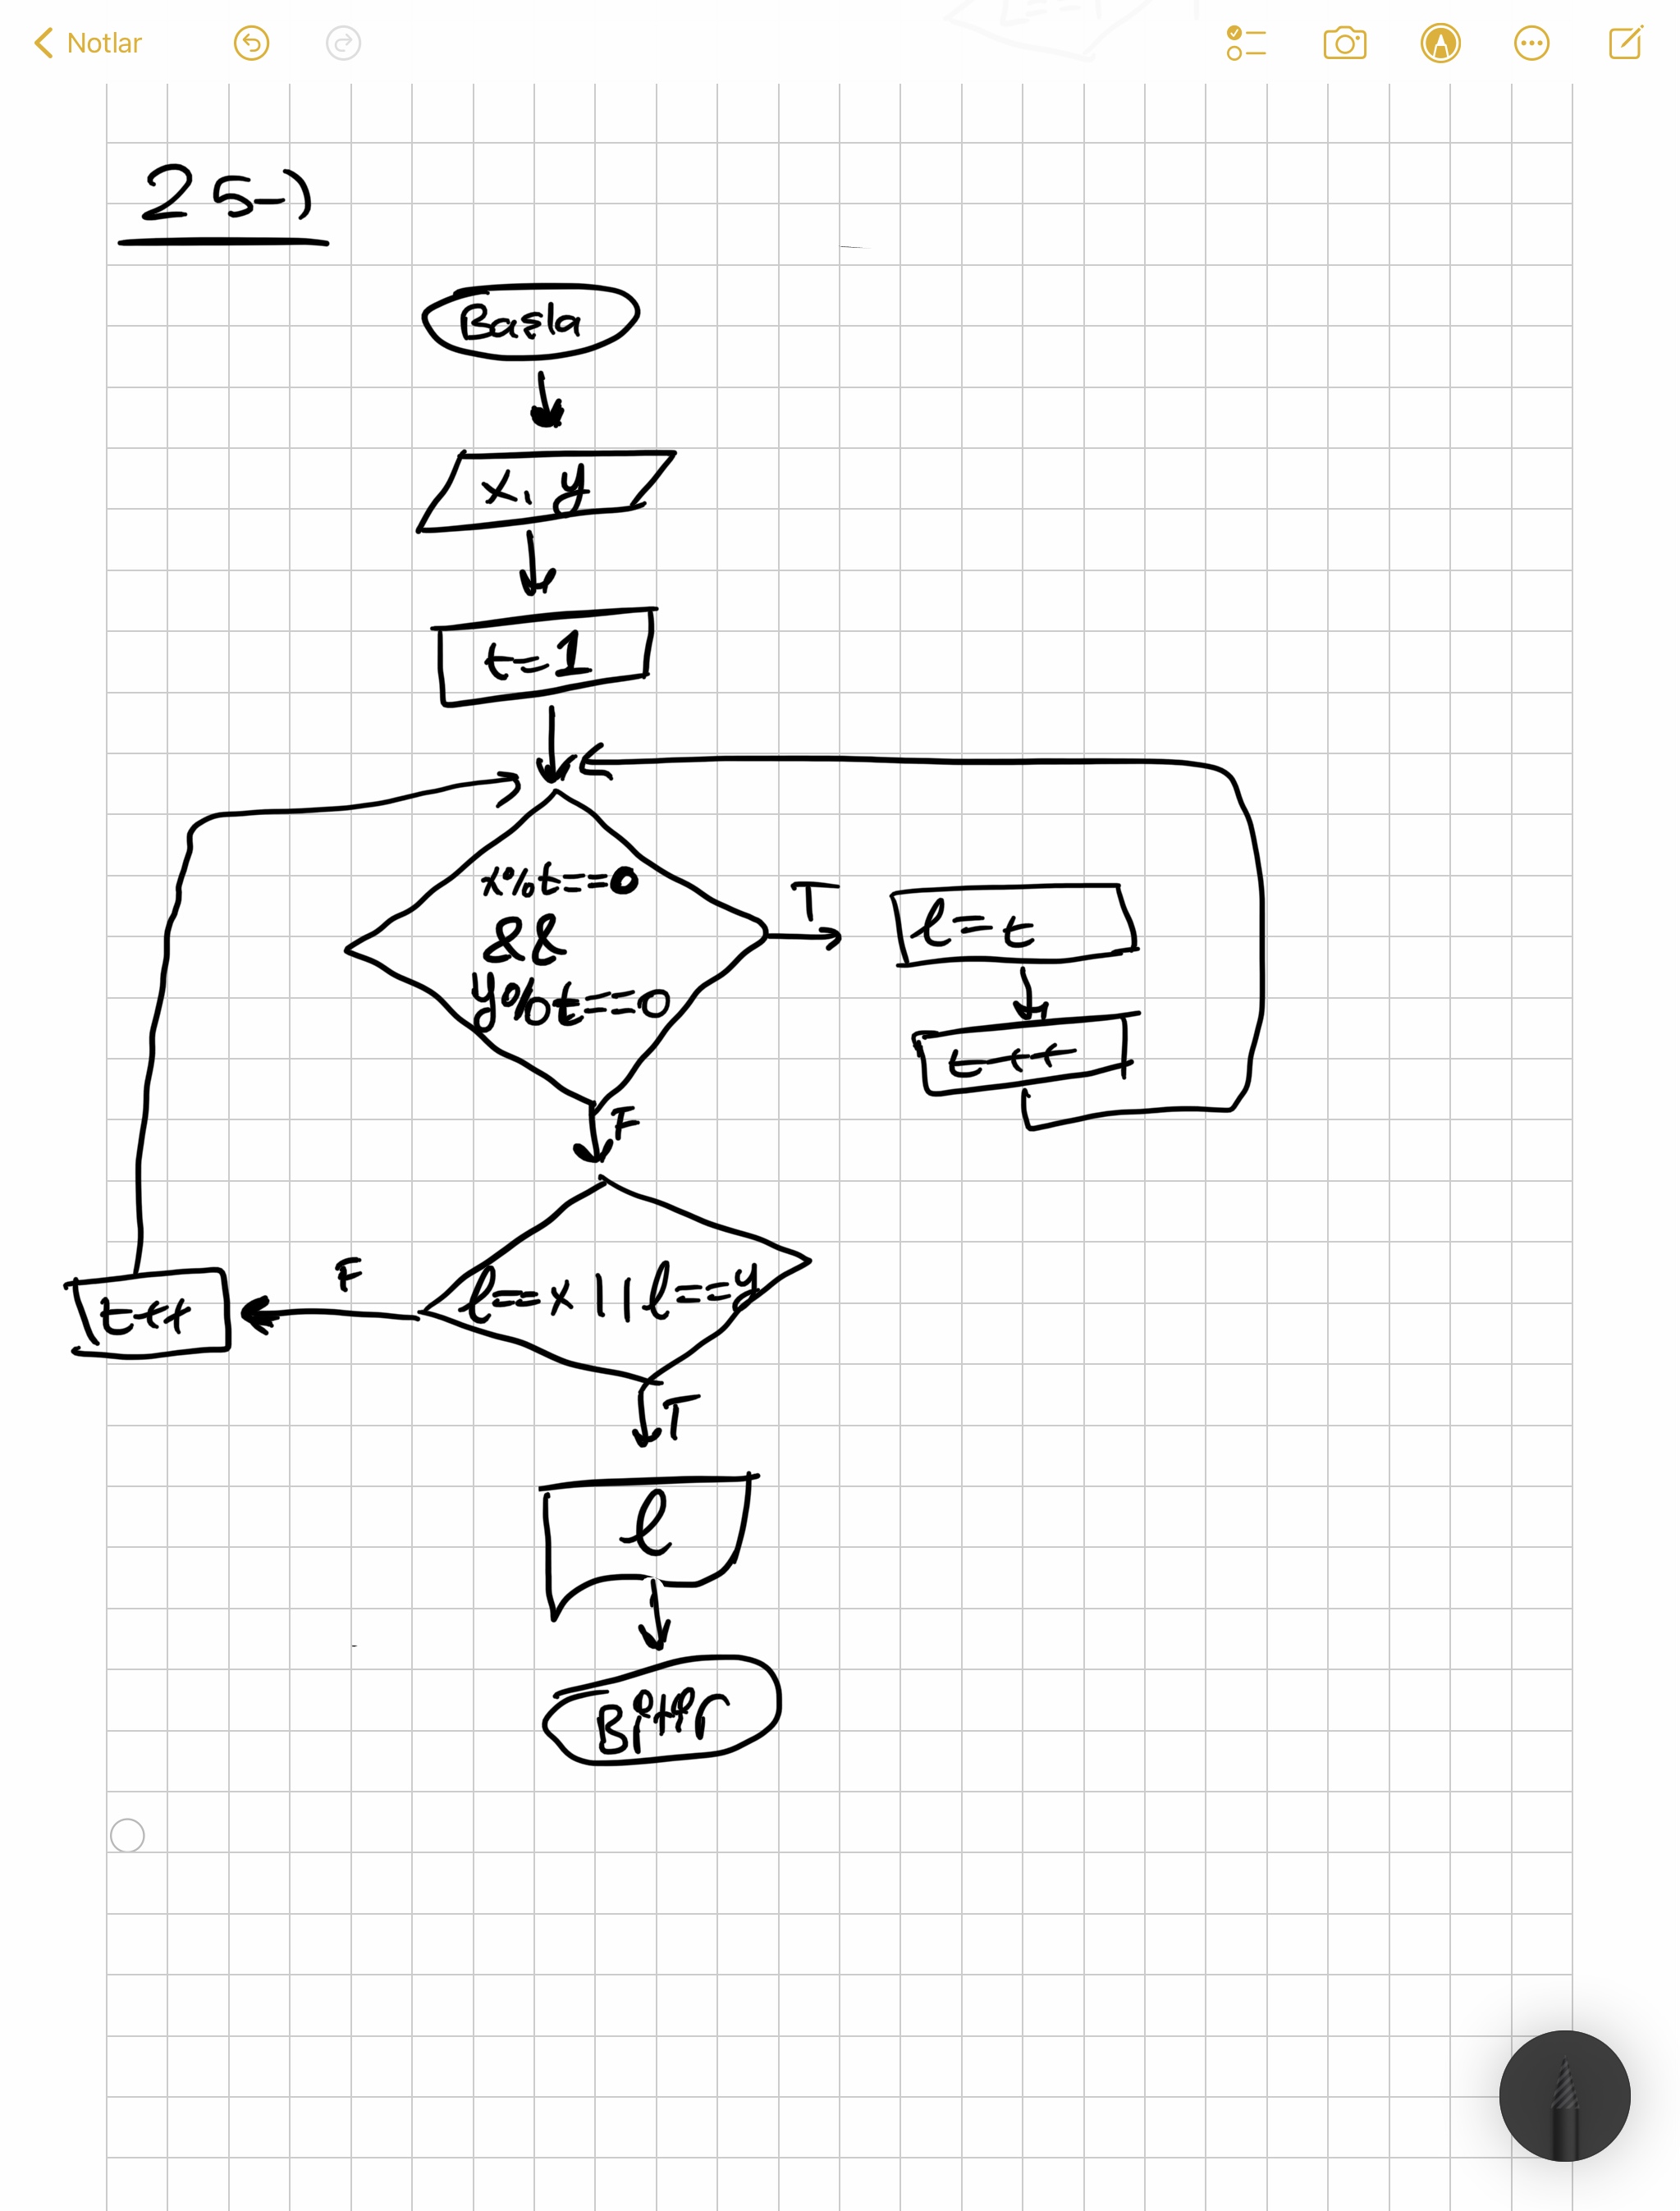 Notlar
25-)
Başla
x, y
t=1
x%t==0
&&
y%t==0
T
l=t
t++
F
l==x || l==y
F
t++
T
l
Bitir